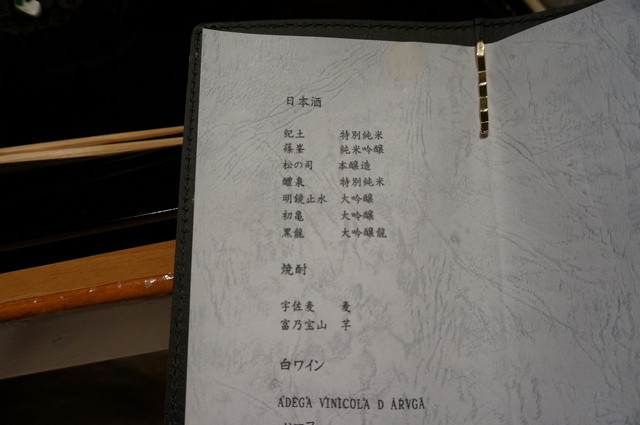 日本酒
紀土 特別純米
篠峯 純米吟醸
松の司 本醸造
醴泉 特別純米
明鏡止水 大吟醸
初亀 大吟醸
黒龍 大吟醸龍
焼酎
宇佐麦 麦
富乃宝山 芋
白ワイン
ADEGA VINICOLA D ARVGA